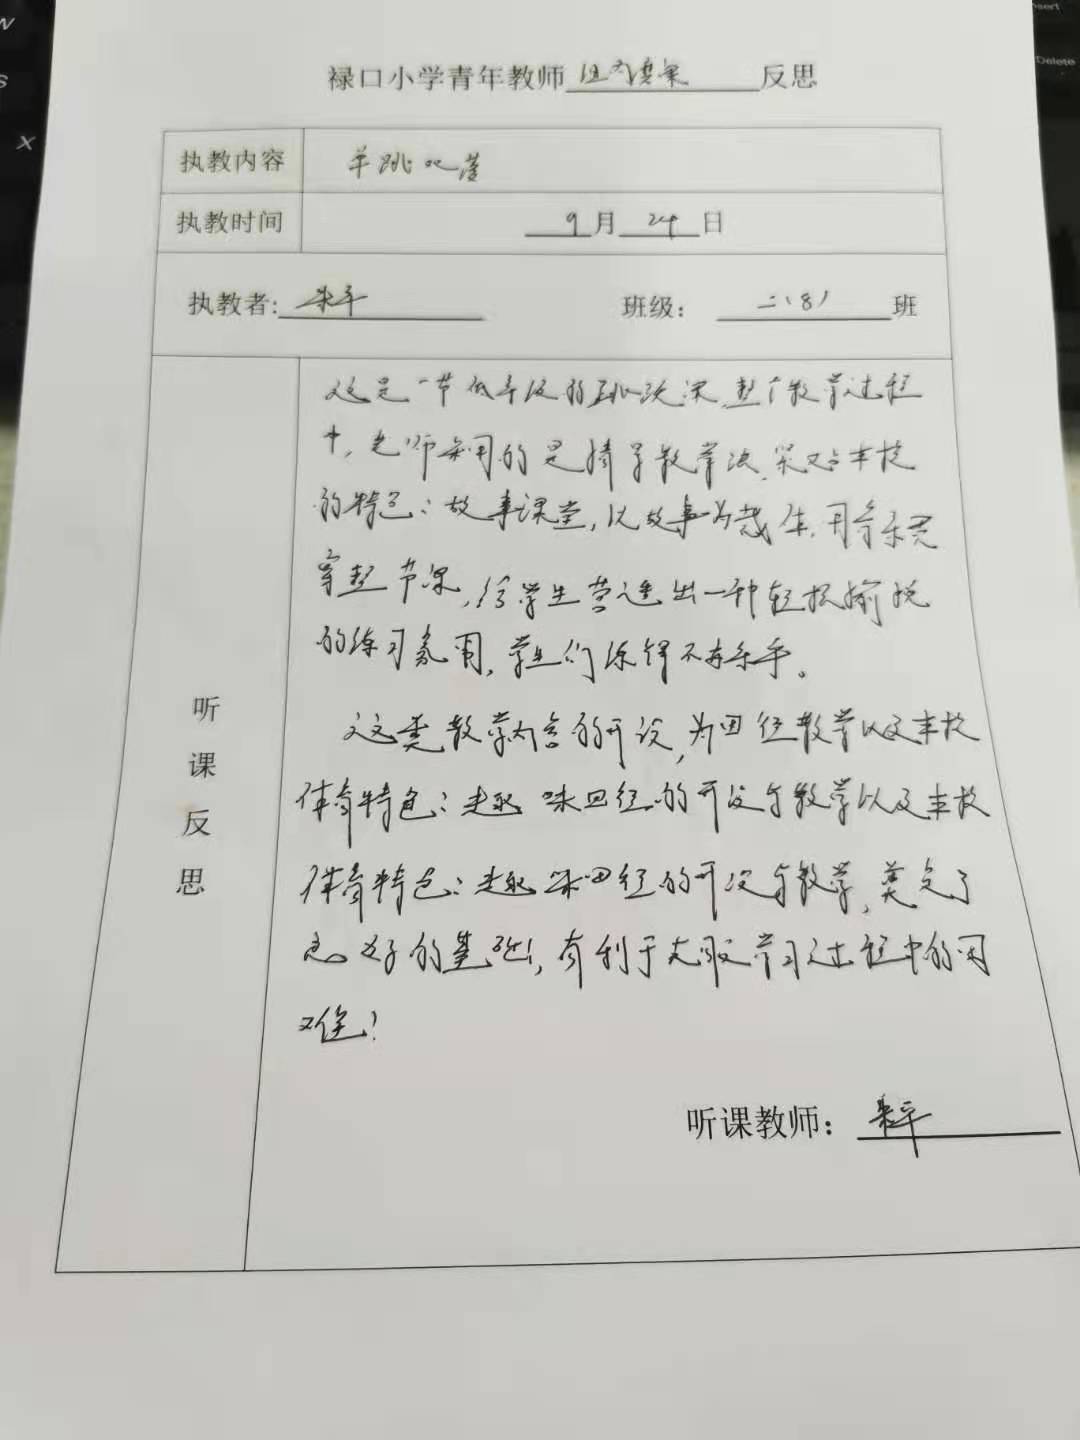 禄口小学青年教师 反思
执教内容 单跳双落
执教时间 9月24日
执教者: 朱平 班级: 二(8) 班
听课反思
这是一节低年级的跳跃课,整个教学过程
中,老师采用的是情景教学法,紧贴本校
的特色:故事课堂,以故事为载体,用音乐贯
穿整节课,给学生营造出一种轻松愉悦
的练习氛围,学生们练得不亦乐乎。
这类教学内容的开设,为田径教学以及本校
体育特色:趣味田径的开设与教学以及本校
体育特色:趣味田径的开设与教学,奠定了
良好的基础,有利于克服学习过程中的困
难!
听课教师: 朱平
Insert
Delete
X